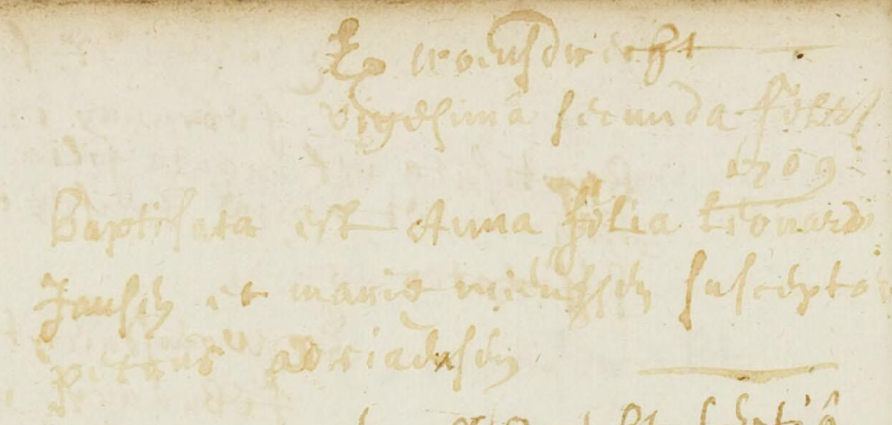 Ex woensdrecht
vigesima secunda febr
1709
Baptisata est Anna filia Leonardi
Jansen et marie suscepto
petrus adriaensen